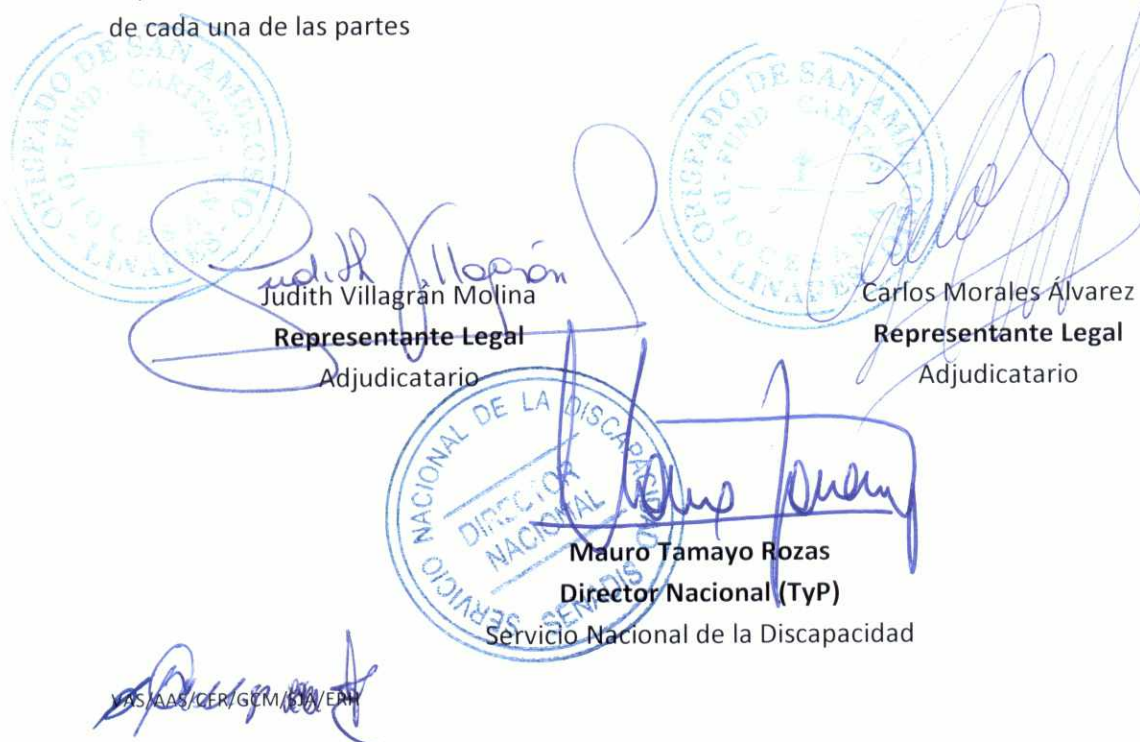 de cada una de las partes
OBISPADO DE SAN AMBROSIO
FUND CARITAS
LINARES
OBISPADO DE SAN AMBROSIO
FUND CARITAS
LINARES
Judith Villagrán
Judith Villagrán Molina
Representante Legal
Adjudicatario
Carlos Morales Álvarez
Representante Legal
Adjudicatario
SERVICIO NACIONAL DE LA DISCAPACIDAD
DIRECTOR
NACIONAL
SENADIS
Mauro Tamayo Rozas
Director Nacional (TyP)
Servicio Nacional de la Discapacidad
VAS/AAS/CFR/GCM/